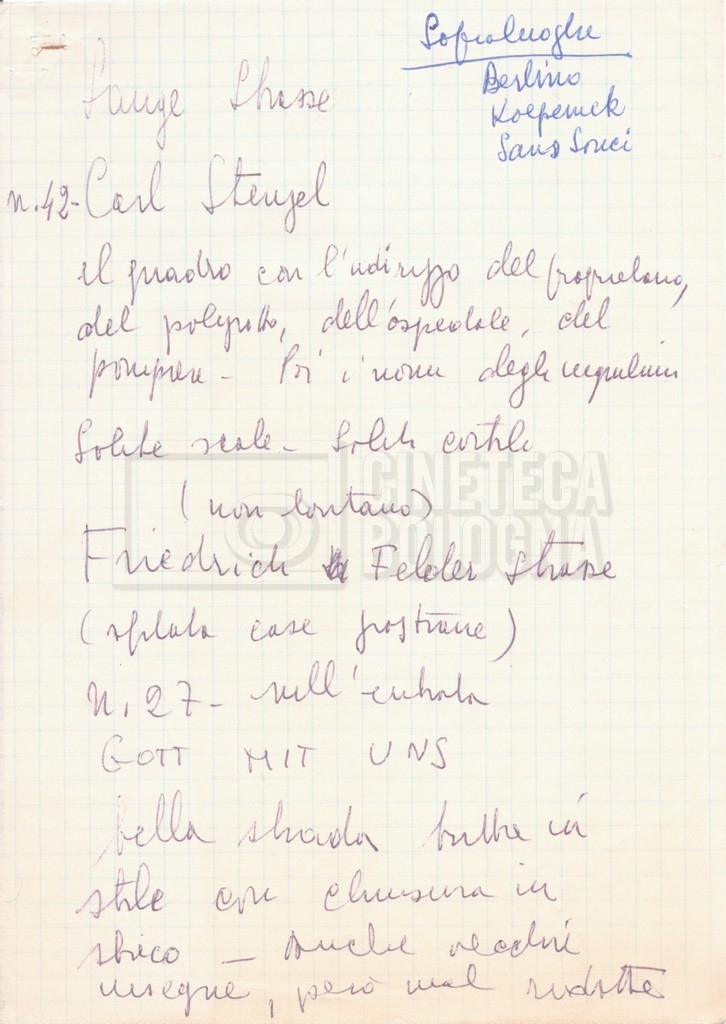 Sopraluoghi
Berlino
Koepenick
Sans Souci
Lange Strasse
n.42- Carl Stenzel
il quadro con l'indirizzo del proprietario,
del poliziotto, dell'ospedale, del
pompiere - Poi i nomi degli inquilini
Solite scale - Solito cortile
(non lontano)
Friedrich Felder Strasse
(sfilata case prostrane)
N. 27 - nell'entrata
GOTT MIT UNS
bella strada tutta in
stile con chiusura in
sbieco - Anche vecchie
insegne, però mal ridotte
CINETECA
BOLOGNA